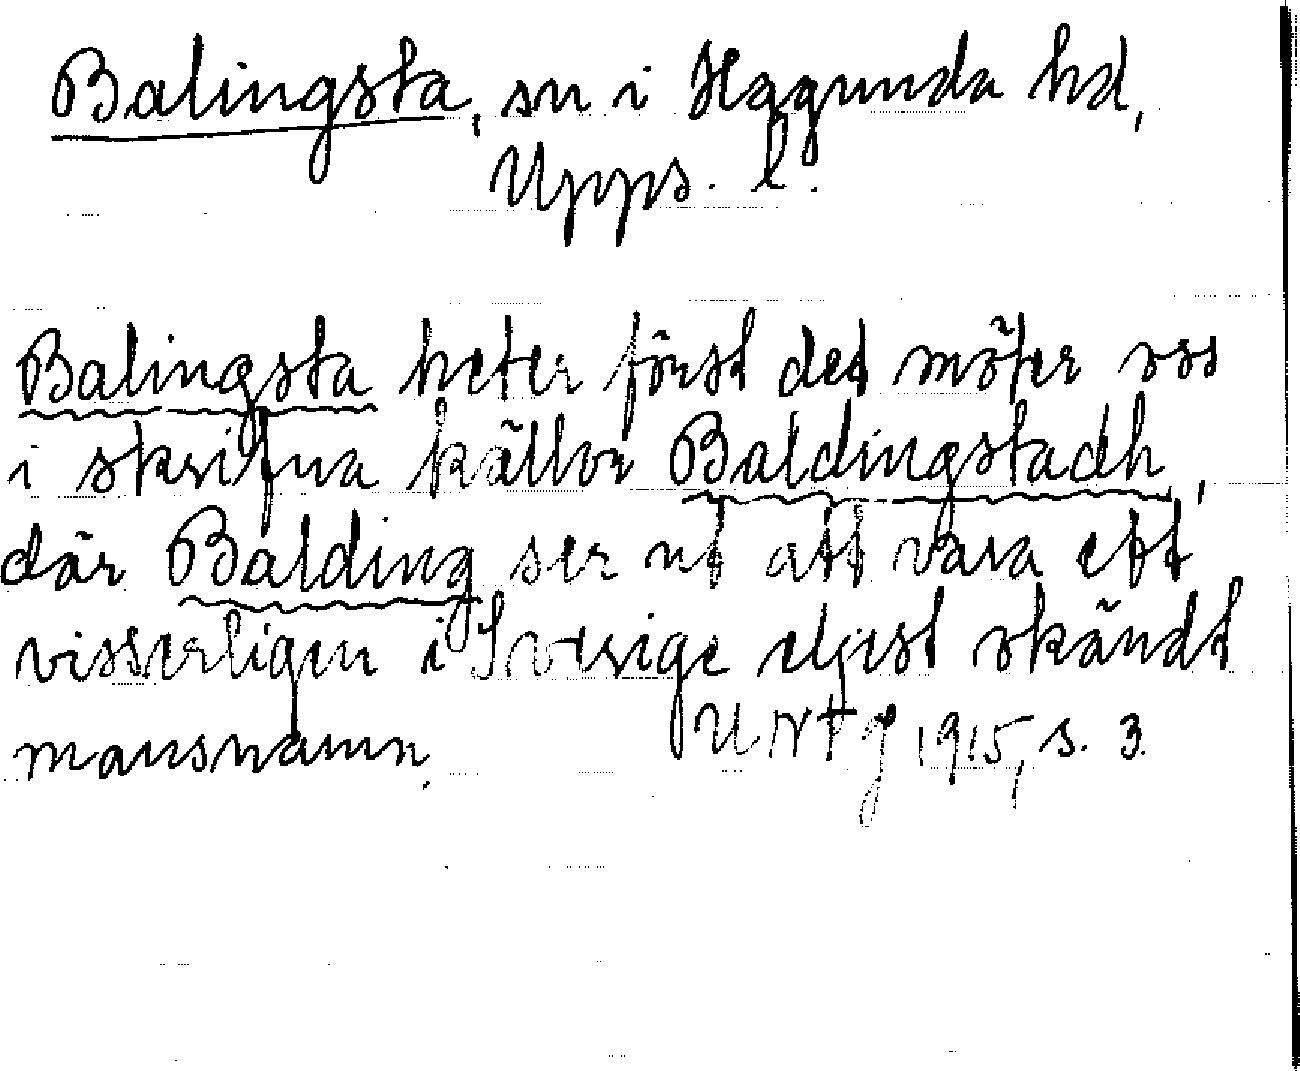 Balingsta, sn i Hagunda hd,
Upps. l.
Balingsta heter först det möter oss
i skrifna källor Baldingstadh,
där Balding ser ut att vara ett
visserligen i Sverige eljest okändt
mansnamn. UNT J 1915, s. 3.